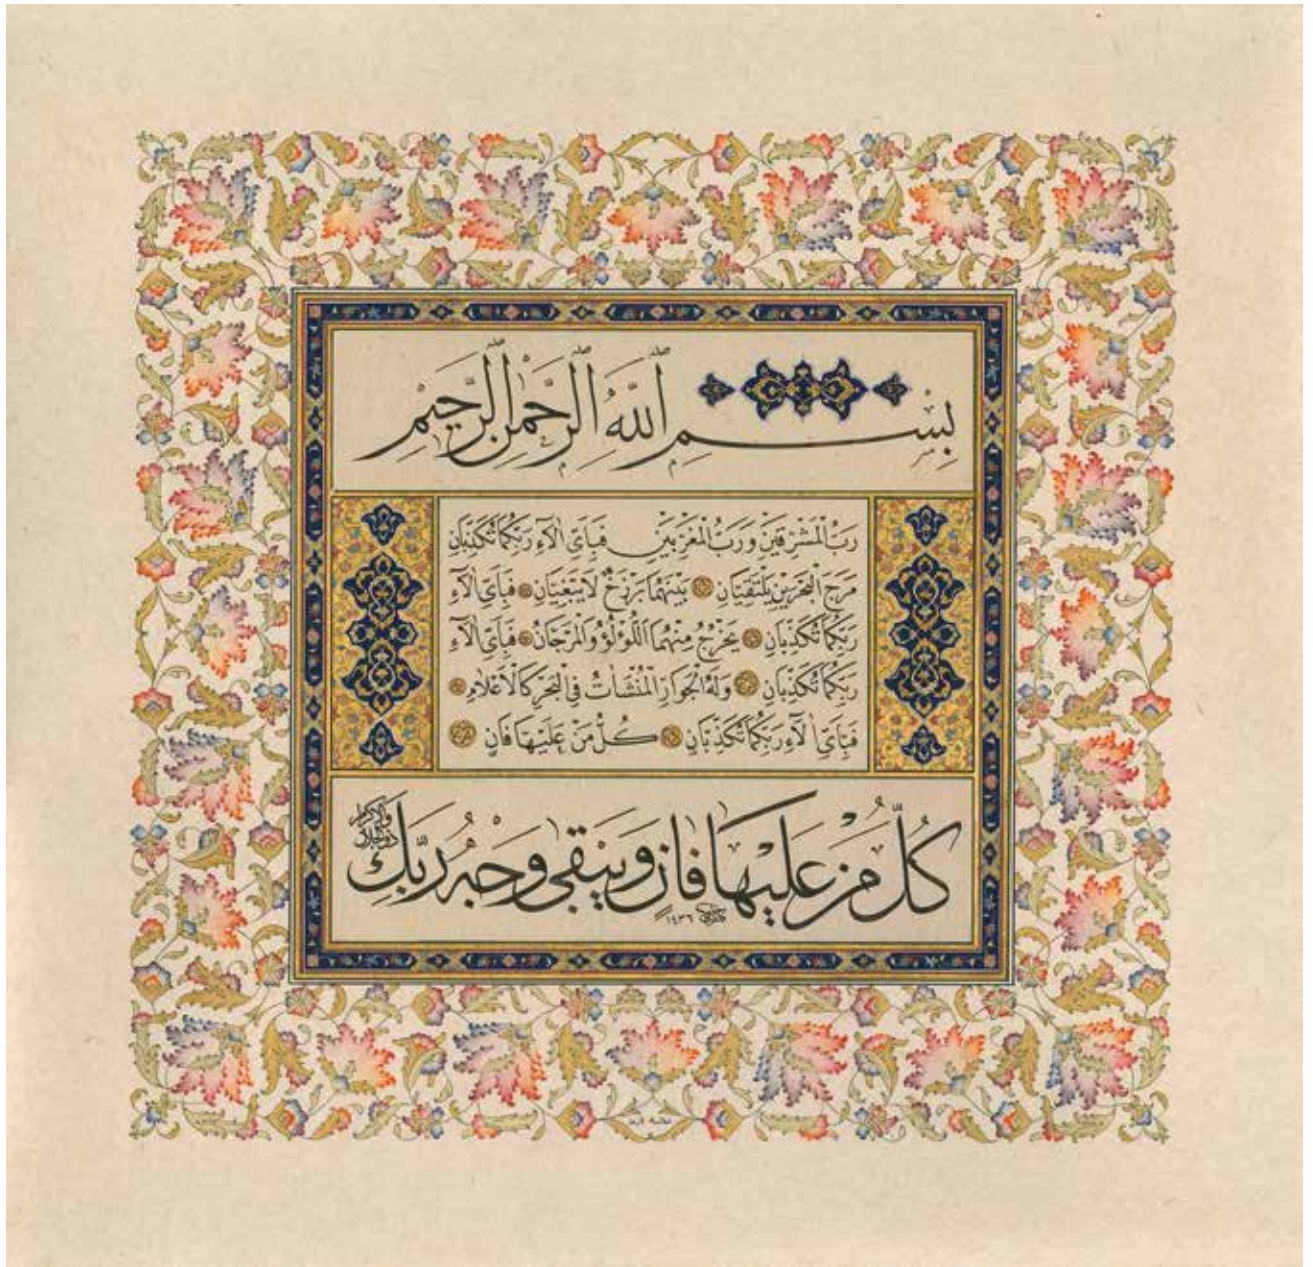 بِسْمِ اللّٰهِ الرَّحْمٰنِ الرَّحِيْمِ
رَبُّ الْمَشْرِقَيْنِ وَرَبُّ الْمَغْرِبَيْنِ فَبِاَيِّ اٰلَآءِ رَبِّكُمَا تُكَذِّبَانِ
مَرَجَ الْبَحْرَيْنِ يَلْتَقِيَانِ بَيْنَهُمَا بَرْزَخٌ لَا يَبْغِيَانِ فَبِاَيِّ اٰلَآءِ
رَبِّكُمَا تُكَذِّبَانِ يَخْرُجُ مِنْهُمَا اللُّؤْلُؤُ وَالْمَرْجَانُ فَبِاَيِّ اٰلَآءِ
رَبِّكُمَا تُكَذِّبَانِ وَلَهُ الْجَوَارِ الْمُنْشَاٰتُ فِى الْبَحْرِ كَالْاَعْلَامِ
فَبِاَيِّ اٰلَآءِ رَبِّكُمَا تُكَذِّبَانِ كُلُّ مَنْ عَلَيْهَا فَانٍ
كُلُّ مَنْ عَلَيْهَا فَانٍ وَيَبْقٰى وَجْهُ رَبِّكَ
ذو الجلال والاكرام
١٤٣٦